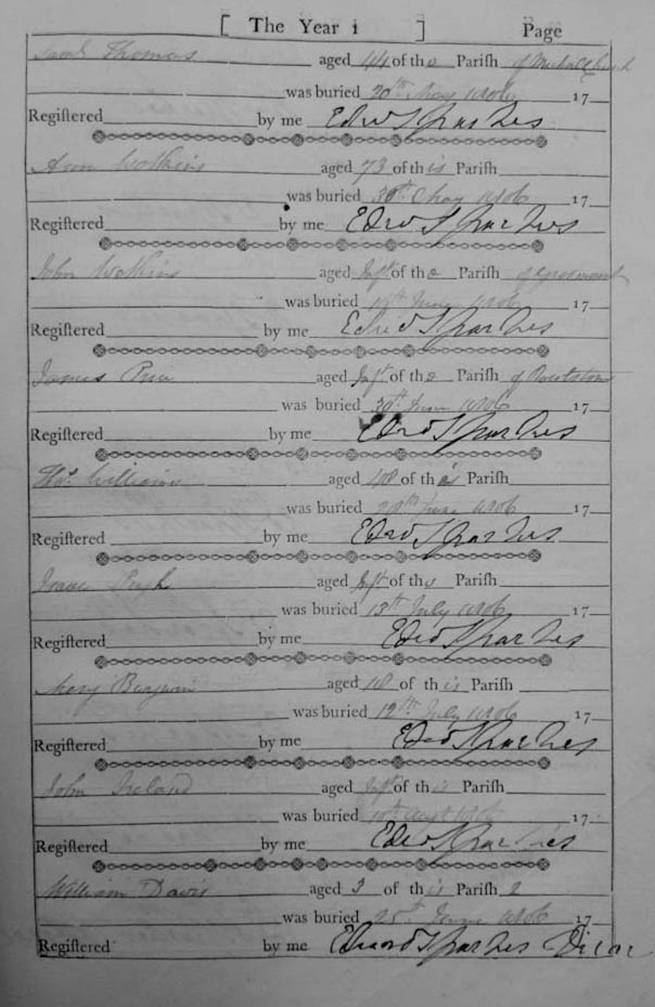 [ The Year 1 ] Page
Saml Thomas aged 44 of the Parish of Michaelchurch
was buried 20th May 1806 17
Registered by me Edwd Sparkes
Ann Watkins aged 73 of this Parish
was buried 30th May 1806 17
Registered by me Edwd Sparkes
John Watkins aged Inft of the Parish of Grosmont
was buried June 1806 17
Registered by me Edwd Sparkes
James Price aged Inft of the Parish of Rowlstone
was buried 30th June 1806 17
Registered by me Edwd Sparkes
Thos Williams aged 48 of this Parish
was buried 28th June 1806 17
Registered by me Edwd Sparkes
Isaac Pugh aged Inft of the Parish
was buried 13th July 1806 17
Registered by me Edwd Sparkes
Mary Benjamin aged 18 of this Parish
was buried 12th July 1806 17
Registered by me Edwd Sparkes
John Ireland aged Inft of this Parish
was buried Augt 1806 17
Registered by me Edwd Sparkes
William Davis aged 3 of this Parish 2
was buried 25th June 1806 17
Registered by me Edward Sparkes Vicar